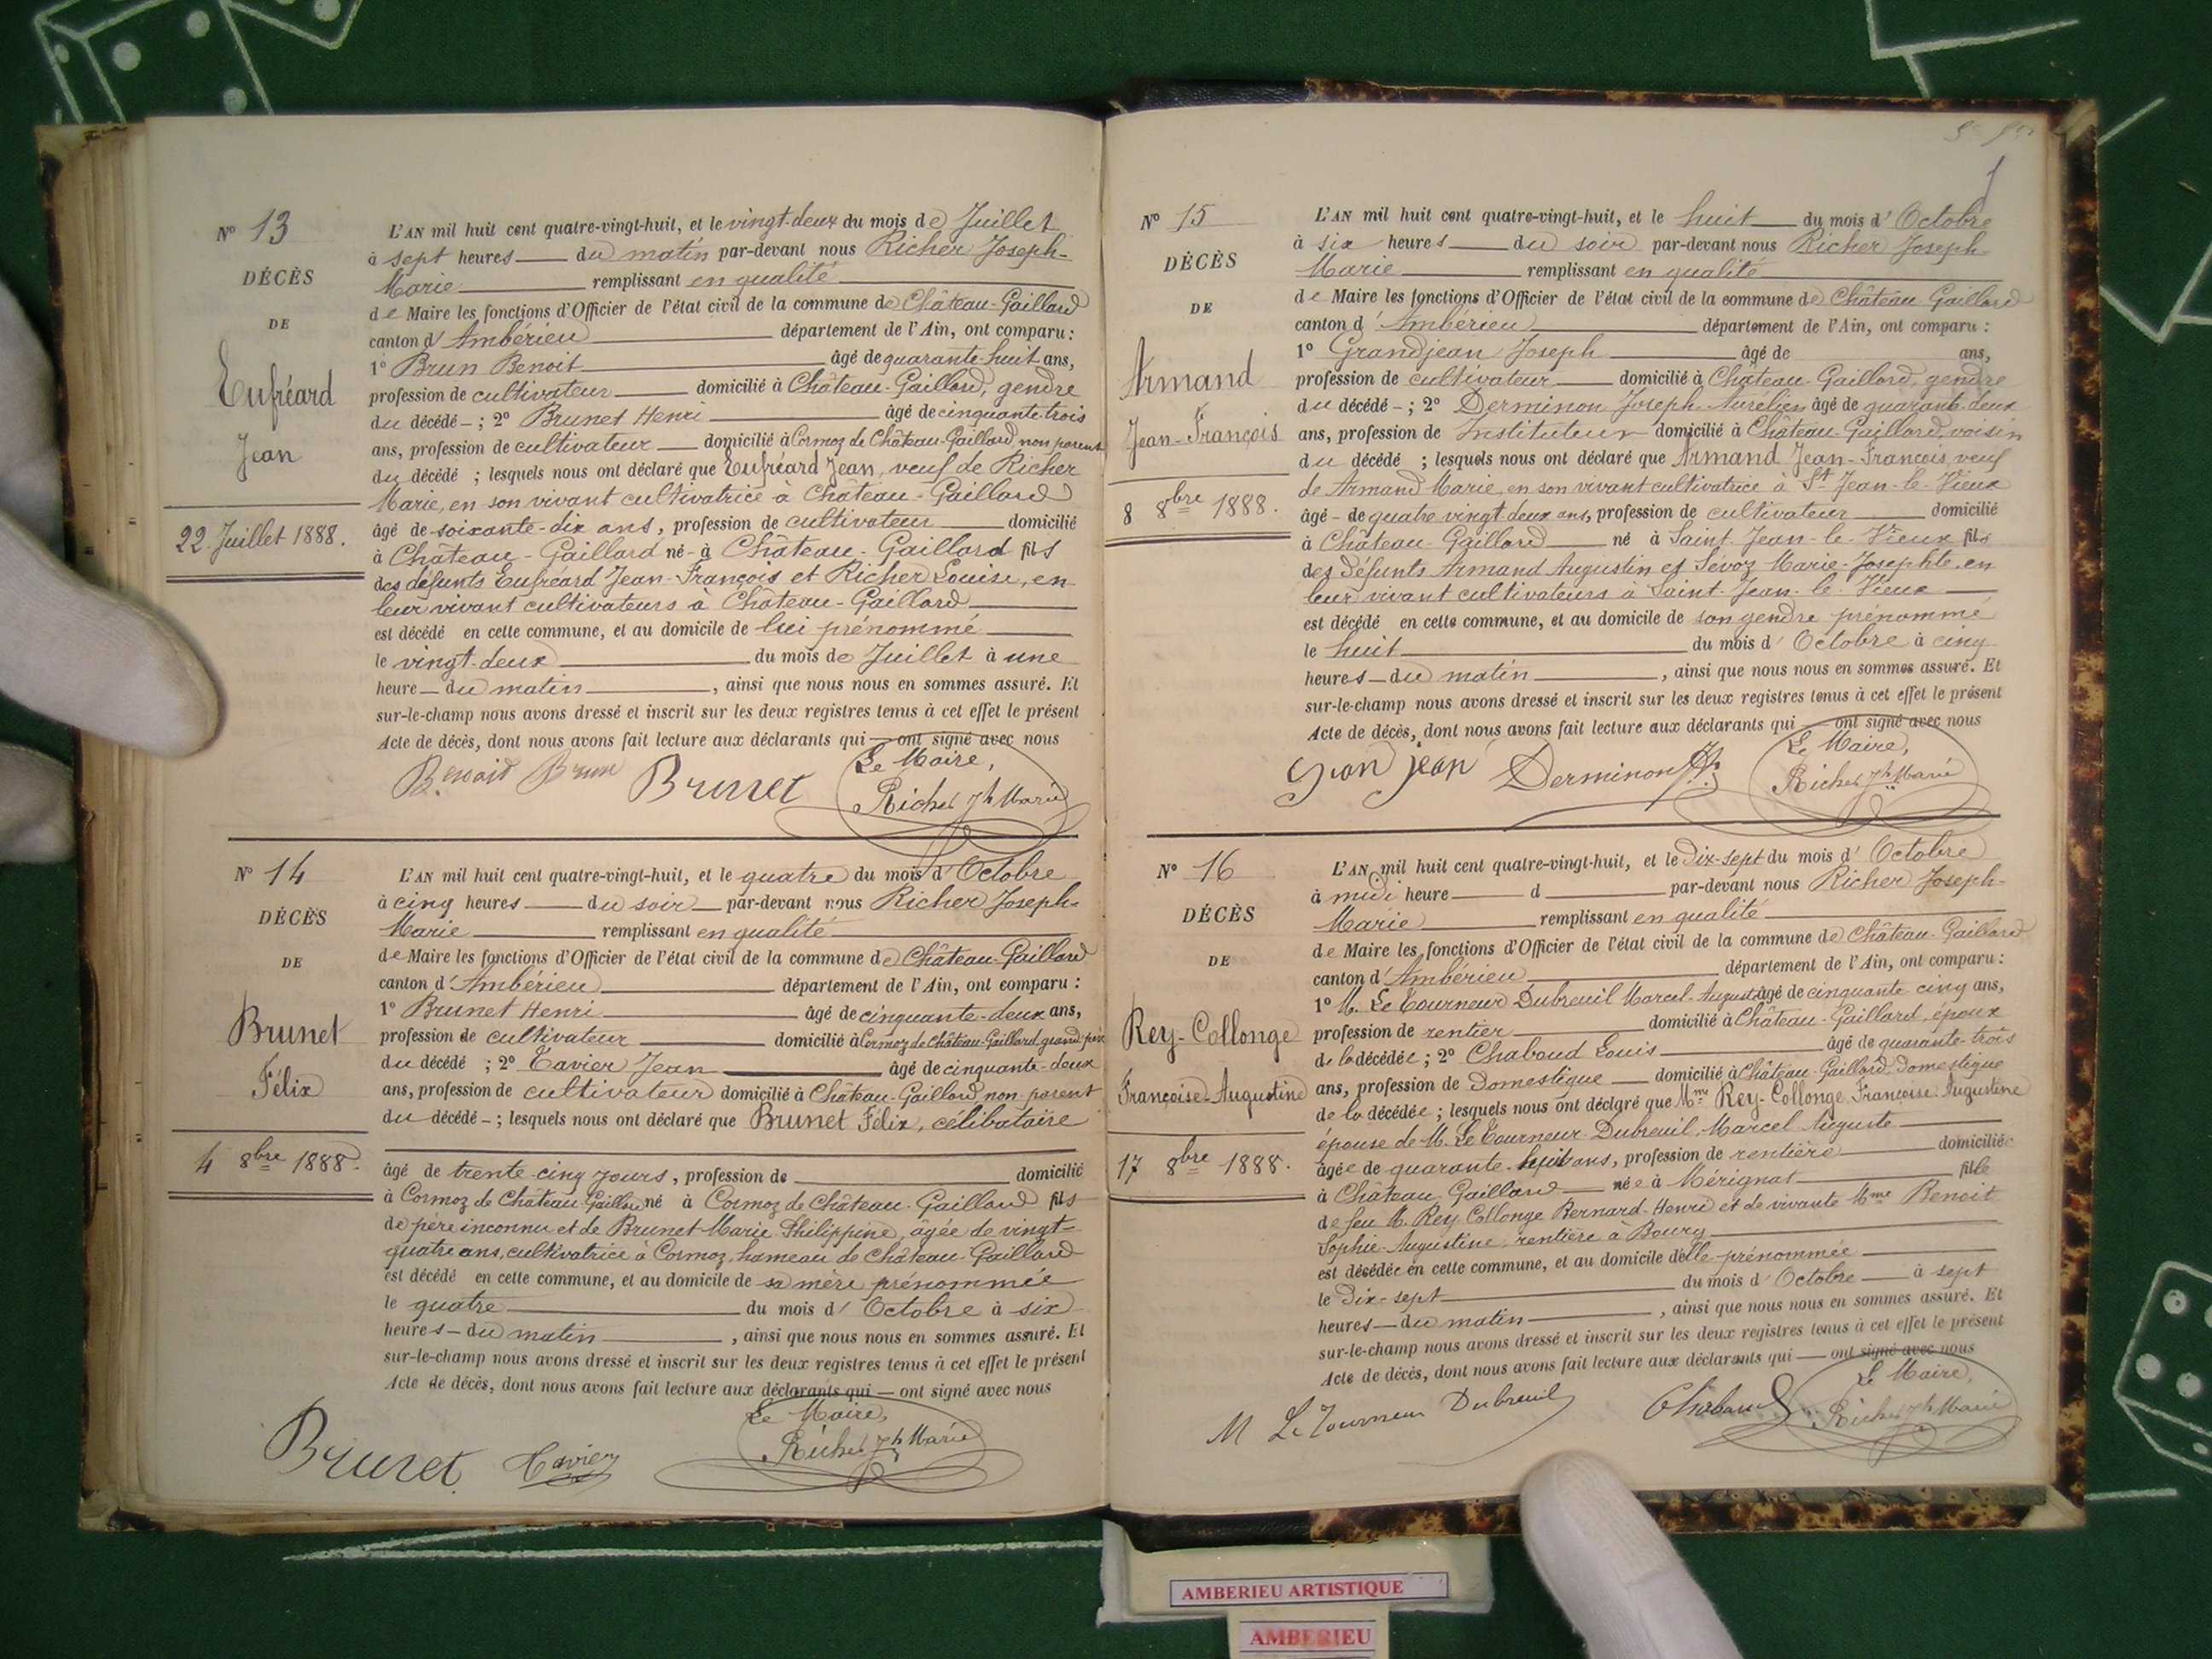 N° 13
DÉCÈS
DE
Eufréard
Jean
22 Juillet 1888.
L'AN mil huit cent quatre-vingt-huit, et le vingt-deux du mois de Juillet
à sept heures du matin par-devant nous Richer Joseph-
Marie remplissant en qualité
de Maire les fonctions d'Officier de l'état civil de la commune de Château-Gaillard
canton d'Ambérieu département de l'Ain, ont comparu :
1° Brun Benoit âgé de quarante-huit ans,
profession de cultivateur domicilié à Château-Gaillard, gendre
du décédé - ; 2° Brunet Henri âgé de cinquante trois
ans, profession de cultivateur domicilié à Cormoz de Château-Gaillard non parent
du décédé ; lesquels nous ont déclaré que Eufréard Jean, veuf de Richer
Marie, en son vivant cultivatrice à Château-Gaillard
âgé de soixante-dix ans, profession de cultivateur domicilié
à Château-Gaillard né à Château-Gaillard fils
des défunts Eufréard Jean-François et Richer Louise, en
leur vivant cultivateurs à Château-Gaillard
est décédé en cette commune, et au domicile de lui prénommé
le vingt-deux du mois de Juillet à une
heure du matin, ainsi que nous nous en sommes assuré. Et
sur-le-champ nous avons dressé et inscrit sur les deux registres tenus à cet effet le présent
Acte de décès, dont nous avons fait lecture aux déclarants qui ont signé avec nous
Benoit Brun Brunet Le Maire,
Richer Jh Marie
N° 14
DÉCÈS
DE
Brunet
Félix
4 8bre 1888.
L'AN mil huit cent quatre-vingt-huit, et le quatre du mois d'Octobre
à cinq heures du soir par-devant nous Richer Joseph-
Marie remplissant en qualité
de Maire les fonctions d'Officier de l'état civil de la commune de Château-Gaillard
canton d'Ambérieu département de l'Ain, ont comparu :
1° Brunet Henri âgé de cinquante-deux ans,
profession de cultivateur domicilié à Cormoz de Château-Gaillard grand père
du décédé ; 2° Tavier Jean âgé de cinquante-deux
ans, profession de cultivateur domicilié à Château-Gaillard, non parent
du décédé - ; lesquels nous ont déclaré que Brunet Félix, célibataire
âgé de trente-cinq jours, profession de domicilié
à Cormoz de Château-Gaillard né à Cormoz de Château-Gaillard fils
de père inconnu et de Brunet Marie Philippine, âgée de vingt-
quatre ans, cultivatrice à Cormoz, hameau de Château-Gaillard
est décédé en cette commune, et au domicile de sa mère prénommée
le quatre du mois d'Octobre à six
heures du matin, ainsi que nous nous en sommes assuré. Et
sur-le-champ nous avons dressé et inscrit sur les deux registres tenus à cet effet le présent
Acte de décès, dont nous avons fait lecture aux déclarants qui ont signé avec nous
Brunet Tavier Le Maire,
Richer Jh Marie
N° 15
DÉCÈS
DE
Armand
Jean-François
8 8bre 1888.
L'AN mil huit cent quatre-vingt-huit, et le huit du mois d'Octobre
à six heures du soir par-devant nous Richer Joseph
Marie remplissant en qualité
de Maire les fonctions d'Officier de l'état civil de la commune de Château Gaillard
canton d'Ambérieu département de l'Ain, ont comparu :
1° Grandjean Joseph âgé de ans,
profession de cultivateur domicilié à Château-Gaillard, gendre
du décédé - ; 2° Derminon Joseph-Aurélien âgé de quarante-deux
ans, profession de Instituteur domicilié à Château-Gaillard, voisin
du décédé ; lesquels nous ont déclaré que Armand Jean-François, veuf
de Armand Marie, en son vivant cultivatrice à St Jean-le-Vieux
âgé de quatre vingt deux ans, profession de cultivateur domicilié
à Château-Gaillard né à Saint-Jean-le-Vieux fils
des défunts Armand Augustin et Sévoz Marie-Josephte, en
leur vivant cultivateurs à Saint-Jean-le-Vieux
est décédé en cette commune, et au domicile de son gendre prénommé
le huit du mois d'Octobre à cinq
heures du matin, ainsi que nous nous en sommes assuré. Et
sur-le-champ nous avons dressé et inscrit sur les deux registres tenus à cet effet le présent
Acte de décès, dont nous avons fait lecture aux déclarants qui ont signé avec nous
Grandjean Derminon Le Maire,
Richer Jh Marie
N° 16
DÉCÈS
DE
Rey-Collonge
Françoise-Augustine
17 8bre 1888.
L'AN mil huit cent quatre-vingt-huit, et le Dix-sept du mois d'Octobre
à midi heure d par-devant nous Richer Joseph-
Marie remplissant en qualité
de Maire les fonctions d'Officier de l'état civil de la commune de Château-Gaillard
canton d'Ambérieu département de l'Ain, ont comparu :
1° M. Le Tourneur Dubreuil Marcel-August âgé de cinquante cinq ans,
profession de rentier domicilié à Château-Gaillard, époux
de la décédée ; 2° Chabaud Louis âgé de quarante-trois
ans, profession de Domestique domicilié à Château-Gaillard, Domestique
de la décédée ; lesquels nous ont déclaré que Mme Rey-Collonge Françoise Augustine
épouse de M. Le Tourneur-Dubreuil, Marcel Auguste
âgée de quarante-huit ans, profession de rentière domiciliée
à Château Gaillard née à Mérignat fille
de feu M. Rey Collonge Bernard-Henri et de vivante Mme Benoit
Sophie-Augustine, rentière à Bourg
est décédée en cette commune, et au domicile d'elle-prénommée
le Dix-sept du mois d'Octobre à sept
heures du matin, ainsi que nous nous en sommes assuré. Et
sur-le-champ nous avons dressé et inscrit sur les deux registres tenus à cet effet le présent
Acte de décès, dont nous avons fait lecture aux déclarants qui ont signé avec nous
M Le Tourneur Dubreuil Chabaud Le Maire,
Richer Jh Marie
AMBERIEU ARTISTIQUE
AMBERIEU